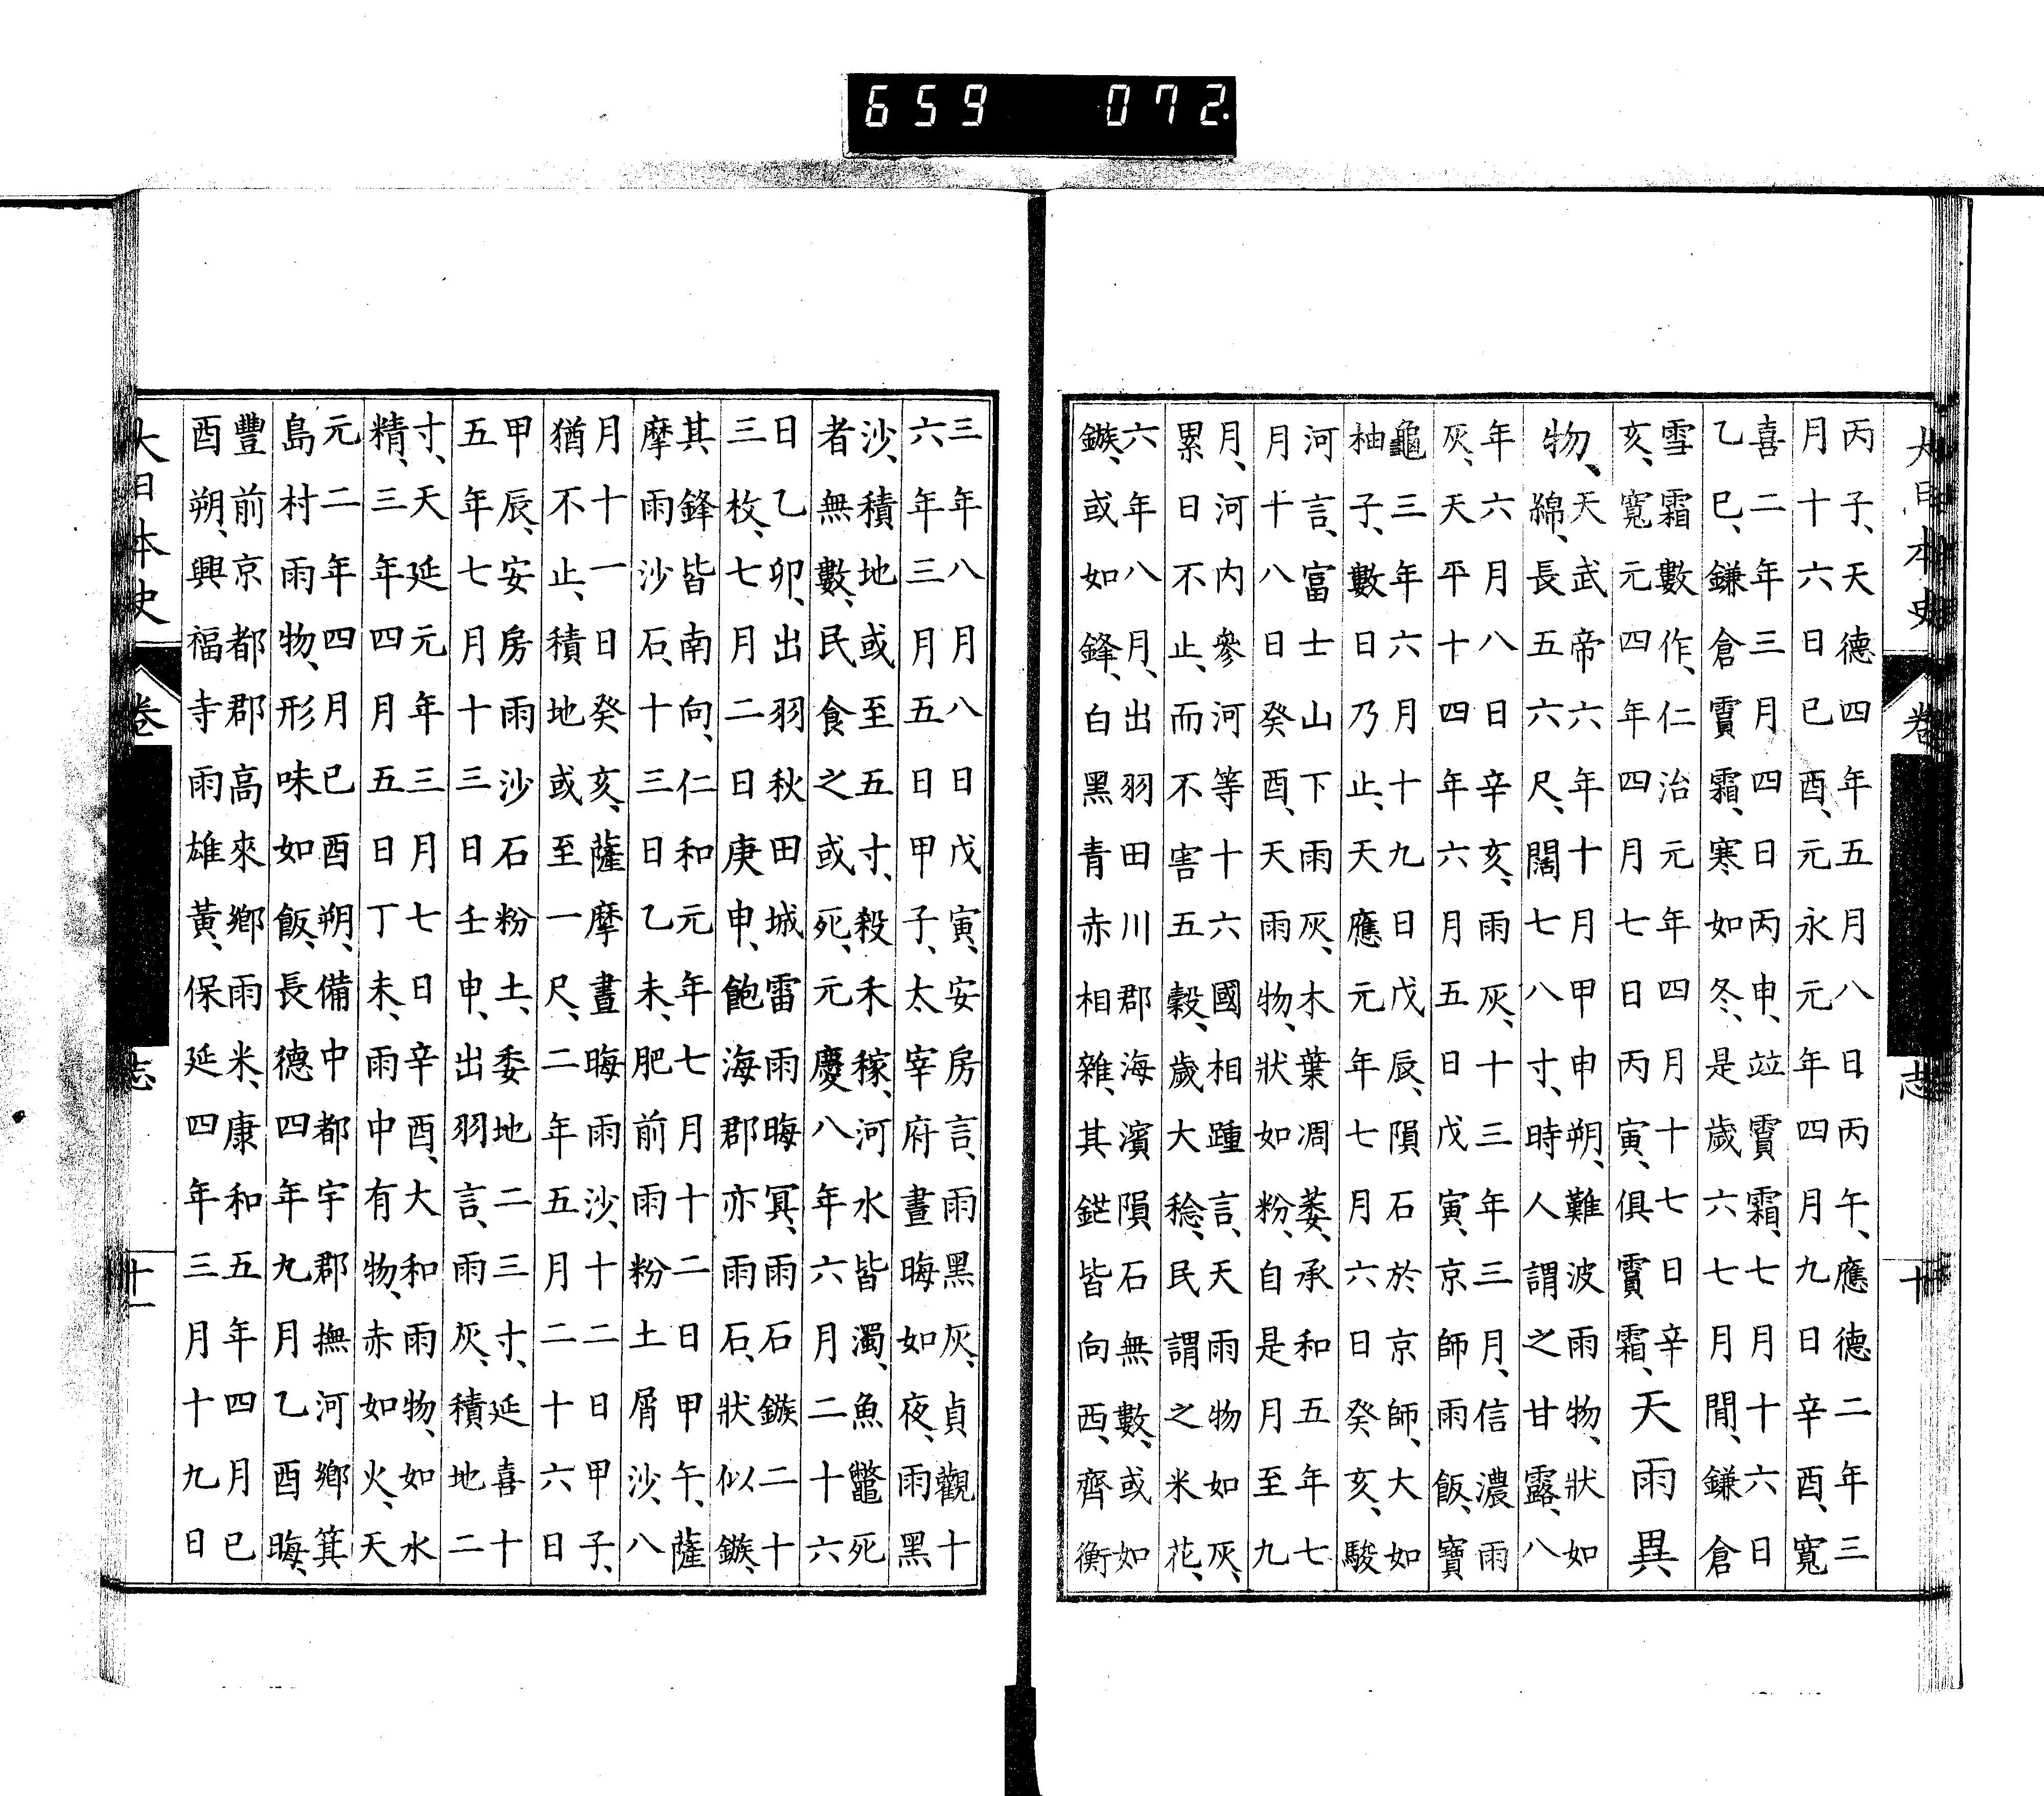 659 072
大日本史 卷 志 十
丙子、天德四年五月八日丙午、應德二年三
月十六日已酉、元永元年四月九日辛酉、寬
喜二年三月四日丙申、竝霣霜、七月十六日
乙巳、鎌倉霣霜、寒如冬、是歲六七月間、鎌倉
雪霜數作、仁治元年四月十七日辛
亥、寬元四年四月七日丙寅、俱霣霜、
天雨異
物、
天武帝六年十月甲申朔、難波雨物、狀如
綿、長五六尺、闊七八寸、時人謂之甘露、八
年六月八日辛亥、雨灰、十三年三月、信濃雨
灰、天平十四年六月五日戊寅、京師雨飯、寶
龜三年六月十九日戊辰、隕石於京師、大如
柚子、數日乃止、天應元年七月六日癸亥、駿
河言、富士山下雨灰、木葉凋萎、承和五年七
月十八日癸酉、天雨物、狀如粉、自是月至九
月、河內參河等十六國相踵言、天雨物如灰、
累日不止、而不害五穀、歲大稔、民謂之米花、
六年八月、出羽田川郡海濱隕石無數、或如
鏃、或如鋒、白黑青赤相雜、其鋩皆向西、齊衡
三年八月八日戊寅、安房言、雨黑灰、貞觀十
六年三月五日甲子、太宰府晝晦如夜、雨黑
沙、積地或至五寸、殺禾稼、河水皆濁、魚鼈死
者無數、民食之或死、元慶八年六月二十六
日乙卯、出羽秋田城雷雨晦冥、雨石鏃二十
三枚、七月二日庚申、飽海郡亦雨石、狀似鏃、
其鋒皆南向、仁和元年七月十二日甲午、薩
摩雨沙石、十三日乙未、肥前雨粉土屑沙、八
月十一日癸亥、薩摩晝晦雨沙、十二日甲子、
猶不止、積地或至一尺、二年五月二十六日
甲辰、安房雨沙石粉土、委地二三寸、延喜十
五年七月十三日壬申、出羽言、雨灰、積地二
寸、天延元年三月七日辛酉、大和雨物、如水
精、三年四月五日丁未、雨中有物、赤如火、天
元二年四月已酉朔、備中都宇郡撫河鄉箕
島村雨物、形味如飯、長德四年九月乙酉晦、
豐前京都郡高來鄉雨米、康和五年四月已
酉朔、興福寺雨雄黃、保延四年三月十九日
大日本史 卷 志 十一